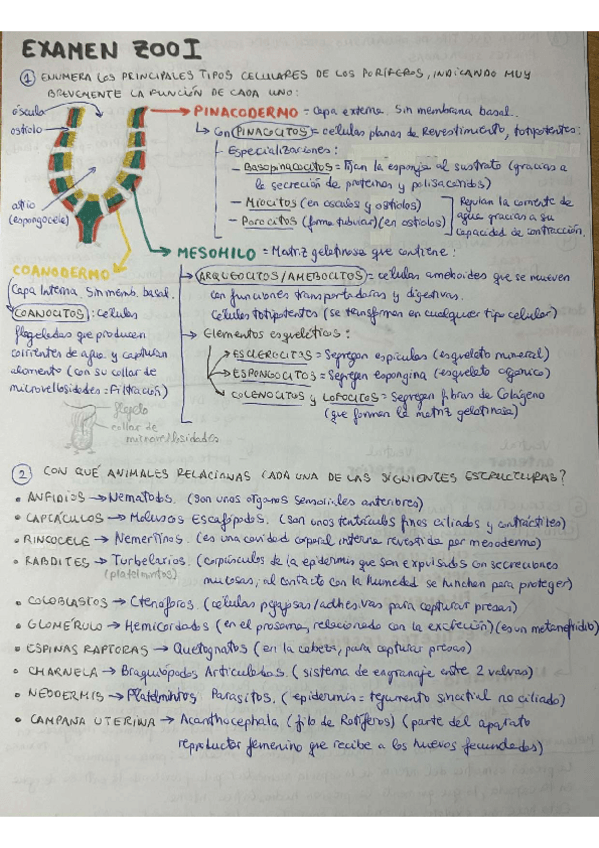 EXAMEN ZOO I
① ENUMERA LOS PRINCIPALES TIPOS CELULARES DE LOS PORÍFEROS, INDICANDO MUY
BREVEMENTE LA FUNCIÓN DE CADA UNO:
ósculo
ostiolo
atrio
(espongocele)
→ PINACODERMO = Capa externa. Sin membrana basal.
↳ Con PINACOCITOS = células planas de Revestimiento, totipotentes:
- Especializaciones:
- Basopinacocitos = Fijan la esponja al sustrato (gracias a
la secreción de proteínas y polisacáridos)
- Miocitos (en ósculos y ostiolos)
- Porocitos (forma tubular) (en ostiolos)
Regulan la corriente de
agua gracias a su
capacidad de contracción.
→ MESOHILO = Matriz gelatinosa que contiene:
→ ARQUEOCITOS/AMEBOCITOS = células ameboides que se mueven
con funciones transportadoras y digestivas.
Células totipotentes (se transforman en cualquier tipo celular)
→ Elementos esqueléticos:
→ ESCLEROCITOS = Segregan espículas (esqueleto mineral)
→ ESPONGOCITOS = Segregan espongina (esqueleto orgánico)
→ COLENOCITOS y LOFOCITOS = Segregan fibras de Colágeno
(que forman la matriz gelatinosa)
COANODERMO
Capa Interna. Sin memb. basal.
COANOCITOS: células
flageladas que producen
corrientes de agua y capturan
alimento (con su collar de
microvellosidades = Filtración)
flagelo
collar de
microvellosidades
② CON QUÉ ANIMALES RELACIONAS CADA UNA DE LAS SIGUIENTES ESTRUCTURAS?
• ANFIDIOS → Nematodos. (son unos órganos sensoriales anteriores)
• CAPTÁCULOS → Moluscos Escafópodos. (son unos tentáculos finos ciliados y contráctiles)
• RINCOCELE → Nemertinos. (es una cavidad corporal interna revestida por mesodermo)
• RABDITES → Turbelarios. (corpúsculos de la epidermis que son expulsados con secreciones
(platelmintos)
mucosas, al contacto con la humedad se hinchan para proteger)
• COLOBLASTOS → Ctenóforos. (células pegajosas/adhesivas para capturar presas)
• GLOMÉRULO → Hemicordados (en el prosoma, relacionado con la excreción) (es un metanefridio)
• ESPINAS RAPTORAS → Quetognatos (en la cabeza, para capturar presas)
• CHARNELA → Braquiópodos Articulados. (sistema de engranaje entre 2 valvas)
• NEODERMIS → Platelmintos Parásitos. (epidermis = tegumento sincitial no ciliado)
• CAMPANA UTERINA → Acanthocephala (filo de Rotíferos) (parte del aparato
reproductor femenino que recibe a los huevos fecundados)